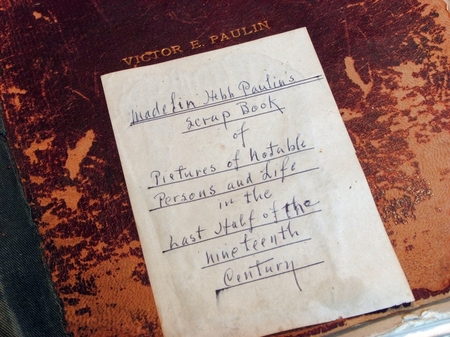 VICTOR E. PAULIN
Madelin Hebb Paulin's
Scrap Book
of
Pictures of Notable
Persons and Life
in the
Last Half of the
nineteenth
Century